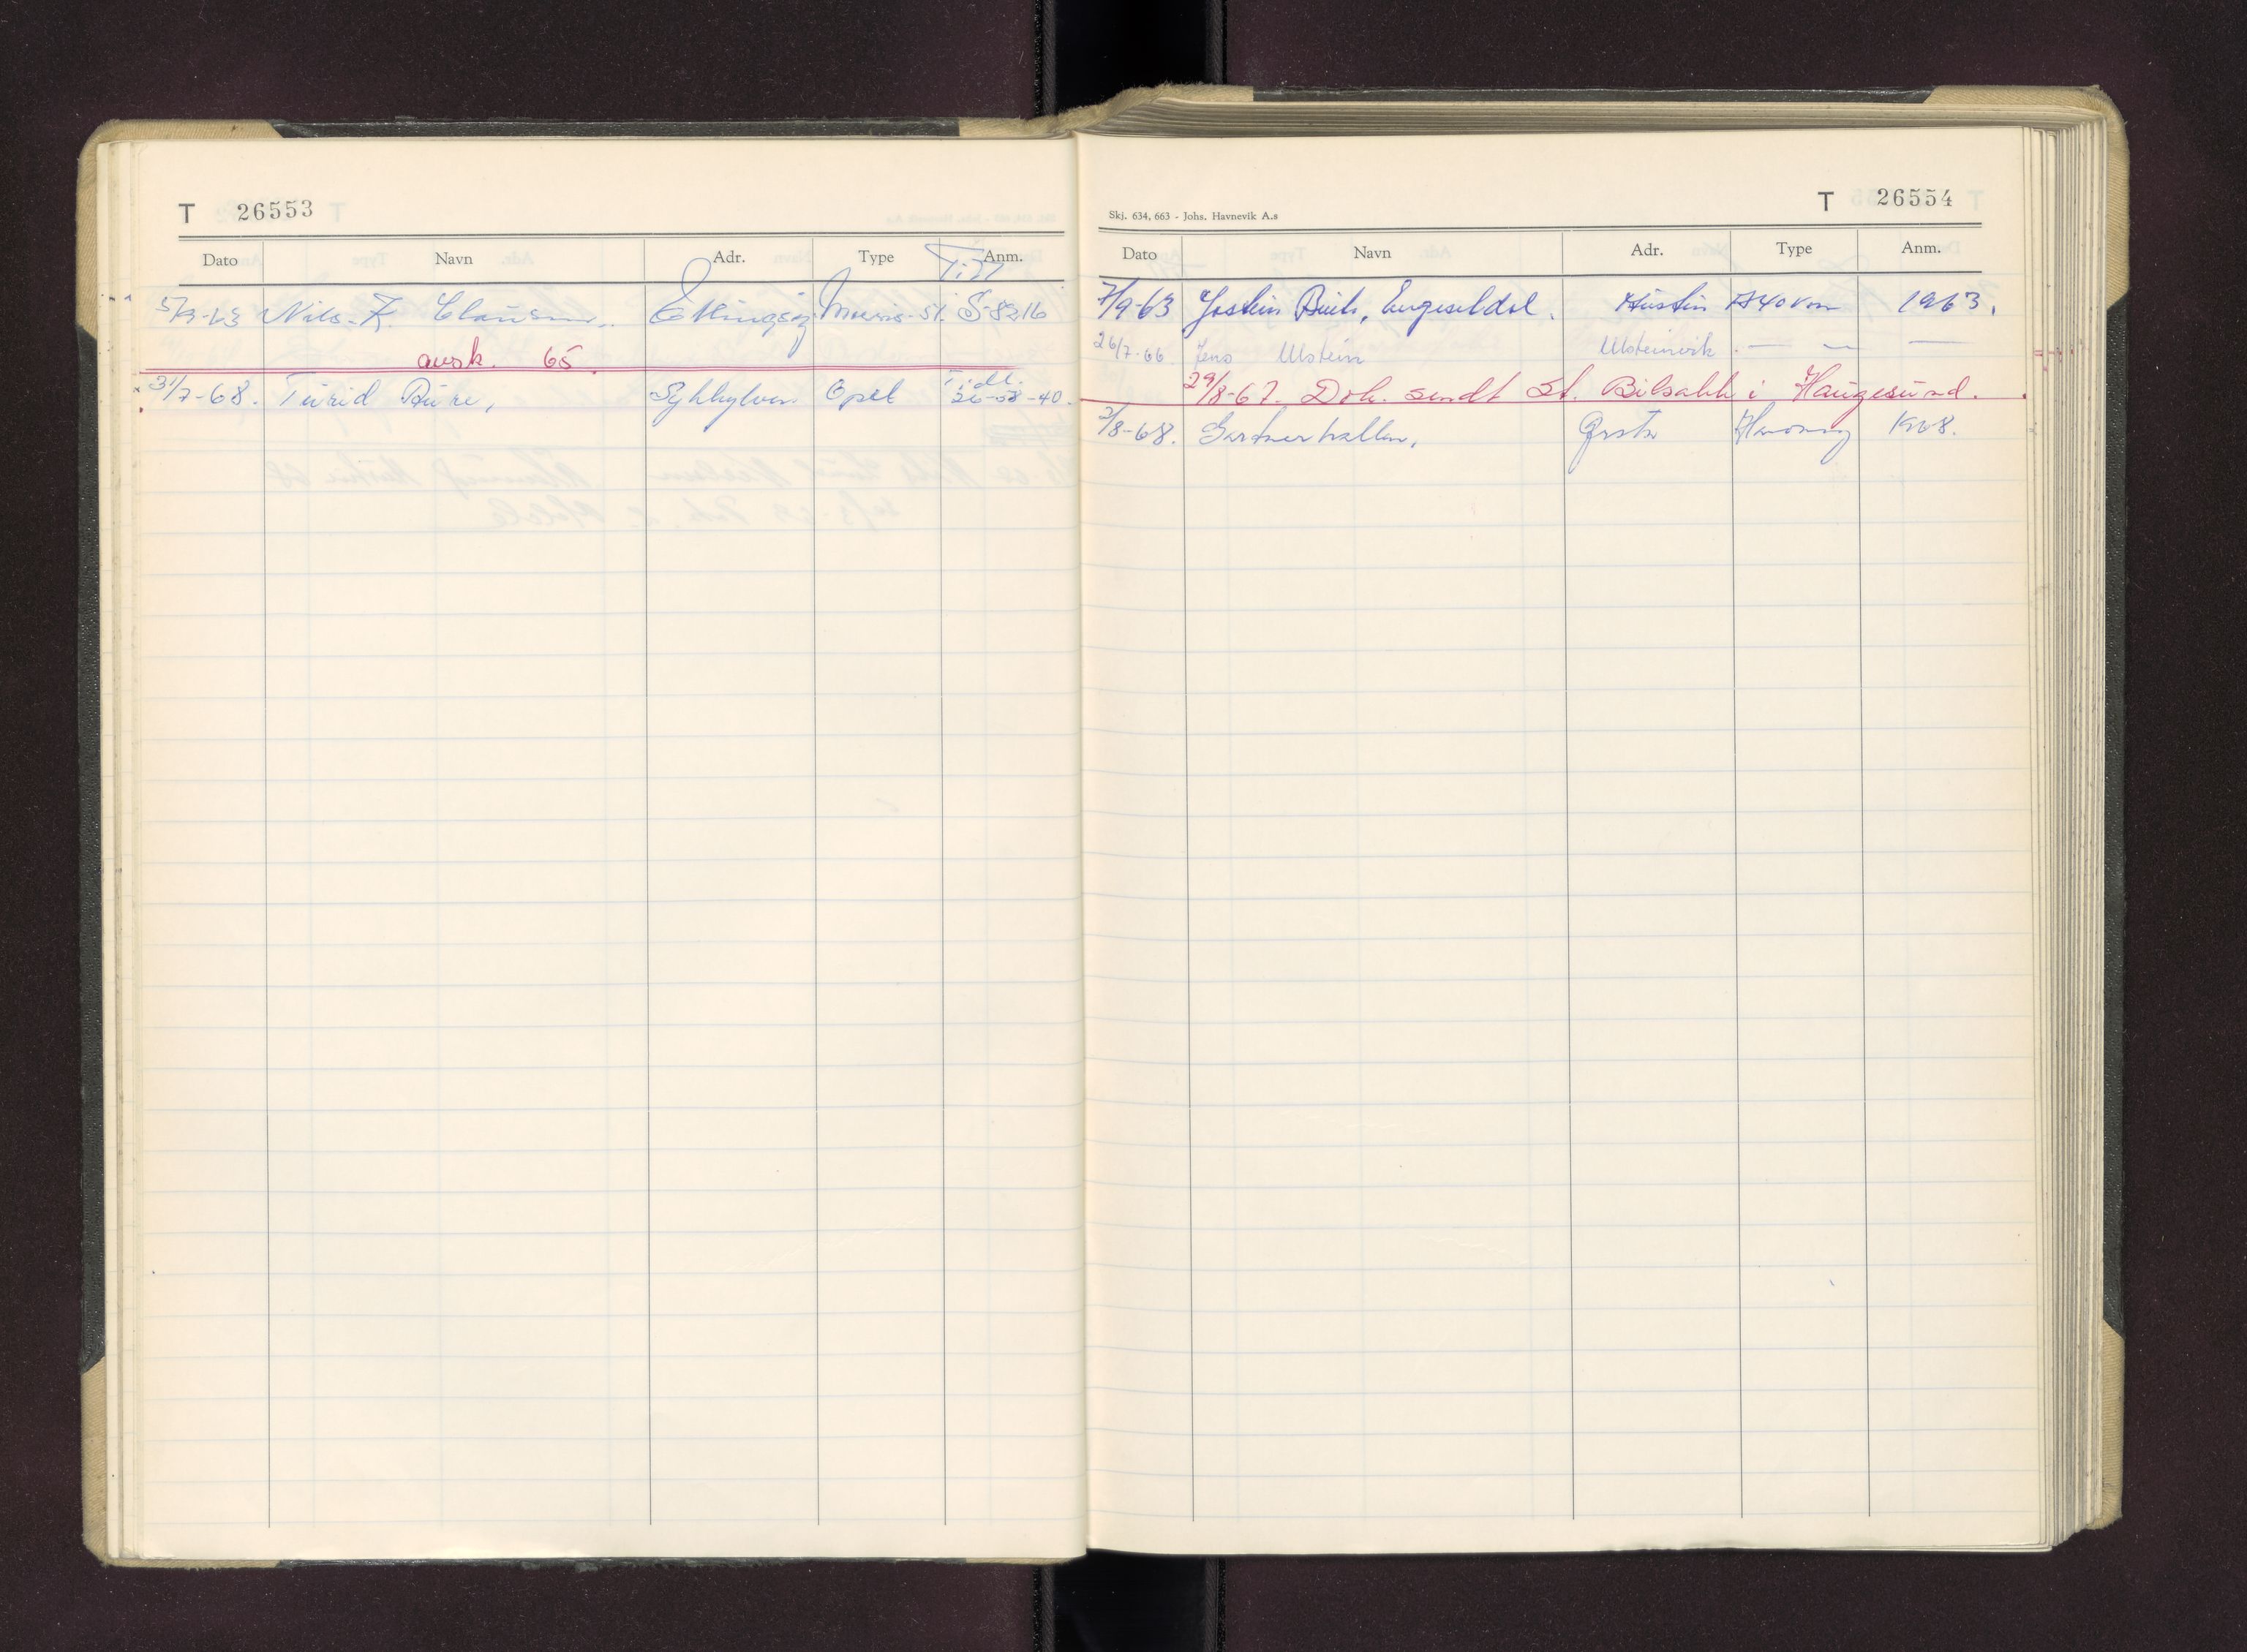 T 26553
Dato Navn Adr. Type Anm.
5/9-63 Nils F. Clausen. Ellingsøy Morris-51. S-8216
avsk. 65.
31/7-68. Turid Aure, Sykkylven Opel Tidl. 26-08-40.
Skj. 634, 663 - Johs. Havnevik A.s
T 26554
Dato Navn Adr. Type Anm.
7/9-63 Jostein Buch, Engeseldal. Austin A40 van 1963.
26/7-66 Jens Ulstein Ulsteinvik. — — —
29/8-67. Dok. sendt St. Bilsakk i Haugesund.
2/8-68. Gartnerhallen, Hanomag 1968.